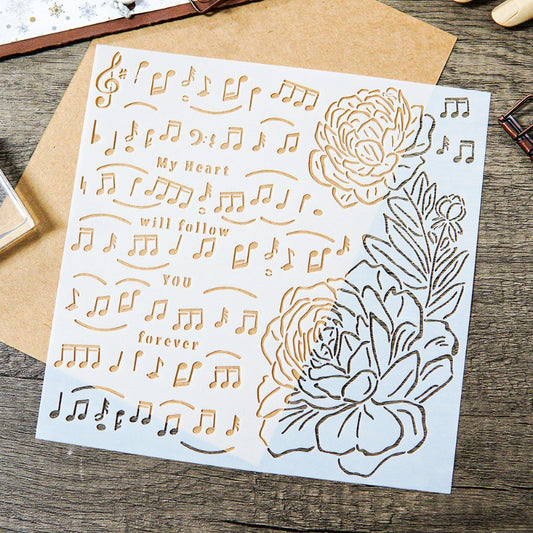 My Heart
will follow
YOU
forever